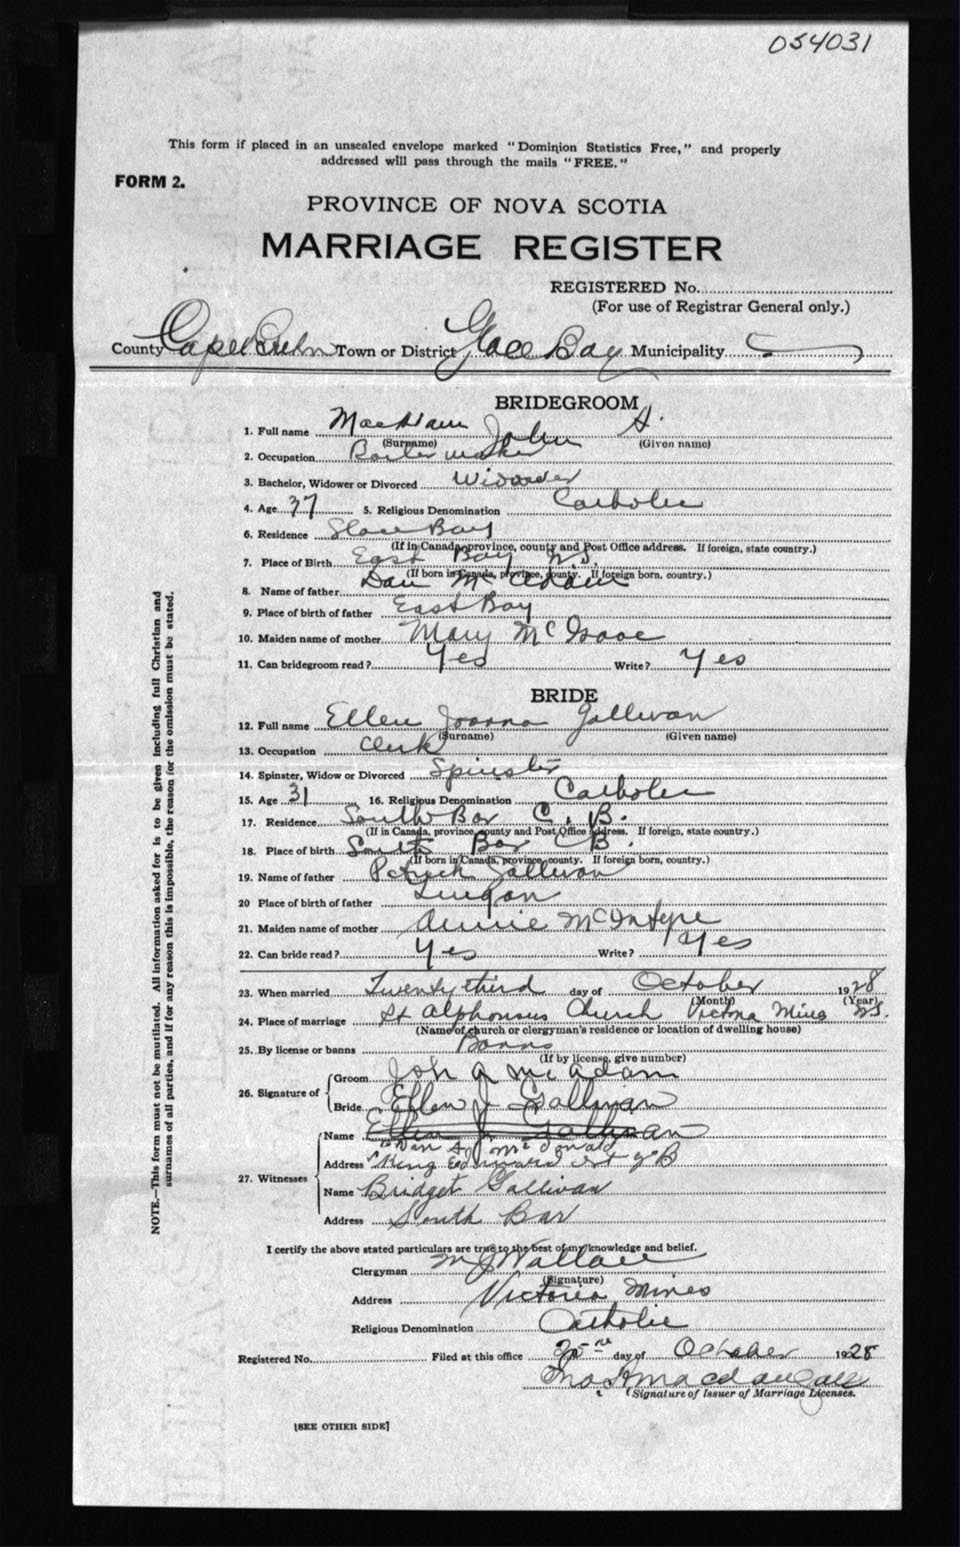 054031
This form if placed in an unsealed envelope marked "Dominion Statistics Free," and properly
addressed will pass through the mails "FREE."
FORM 2.
PROVINCE OF NOVA SCOTIA
MARRIAGE REGISTER
REGISTERED No.
(For use of Registrar General only.)
County Cape Breton Town or District Glace Bay Municipality
BRIDEGROOM
1. Full name MacAdam John A.
(Surname) (Given name)
2. Occupation Boiler maker
3. Bachelor, Widower or Divorced Widower
4. Age 37 5. Religious Denomination Catholic
6. Residence Glace Bay
(If in Canada, province, county and Post Office address. If foreign, state country.)
7. Place of Birth East Bay N.S.
(If born in Canada, province, county. If foreign born, country.)
8. Name of father Dan McAdam
9. Place of birth of father East Bay
10. Maiden name of mother Mary McIsaac
11. Can bridegroom read? Yes Write? Yes
BRIDE
12. Full name Ellen Joanna Gallivan
(Surname) (Given name)
13. Occupation Clerk
14. Spinster, Widow or Divorced Spinster
15. Age 31 16. Religious Denomination Catholic
17. Residence South Bar C.B.
(If in Canada, province, county and Post Office address. If foreign, state country.)
18. Place of birth South Bar CB.
(If born in Canada, province, county. If foreign born, country.)
19. Name of father Patrick Gallivan
20 Place of birth of father Lingan
21. Maiden name of mother Annie McIntyre
22. Can bride read? Yes Write? Yes
23. When married Twenty third day of October 1928
(Month) (Year)
24. Place of marriage St Alphonsus Church Victoria Mines NS.
(Name of church or clergyman's residence or location of dwelling house)
25. By license or banns Banns
(If by license, give number)
26. Signature of
Groom John A McAdam
Bride Ellen J Gallivan
27. Witnesses
Name Ellen J. Gallivan
Dan A. McDonald
Address King Edward St G B
Name Bridget Gallivan
Address South Bar
I certify the above stated particulars are true to the best of my knowledge and belief.
Clergyman M J Wallace
(Signature)
Address Victoria Mines
Religious Denomination Catholic
Registered No. Filed at this office 25 day of October 1928
Signature of Issuer of Marriage Licenses.
[SEE OTHER SIDE]
NOTE.—This form must not be mutilated. All information asked for is to be given including full Christian and
surnames of all parties, and if for any reason this is impossible, the reason for the omission must be stated.